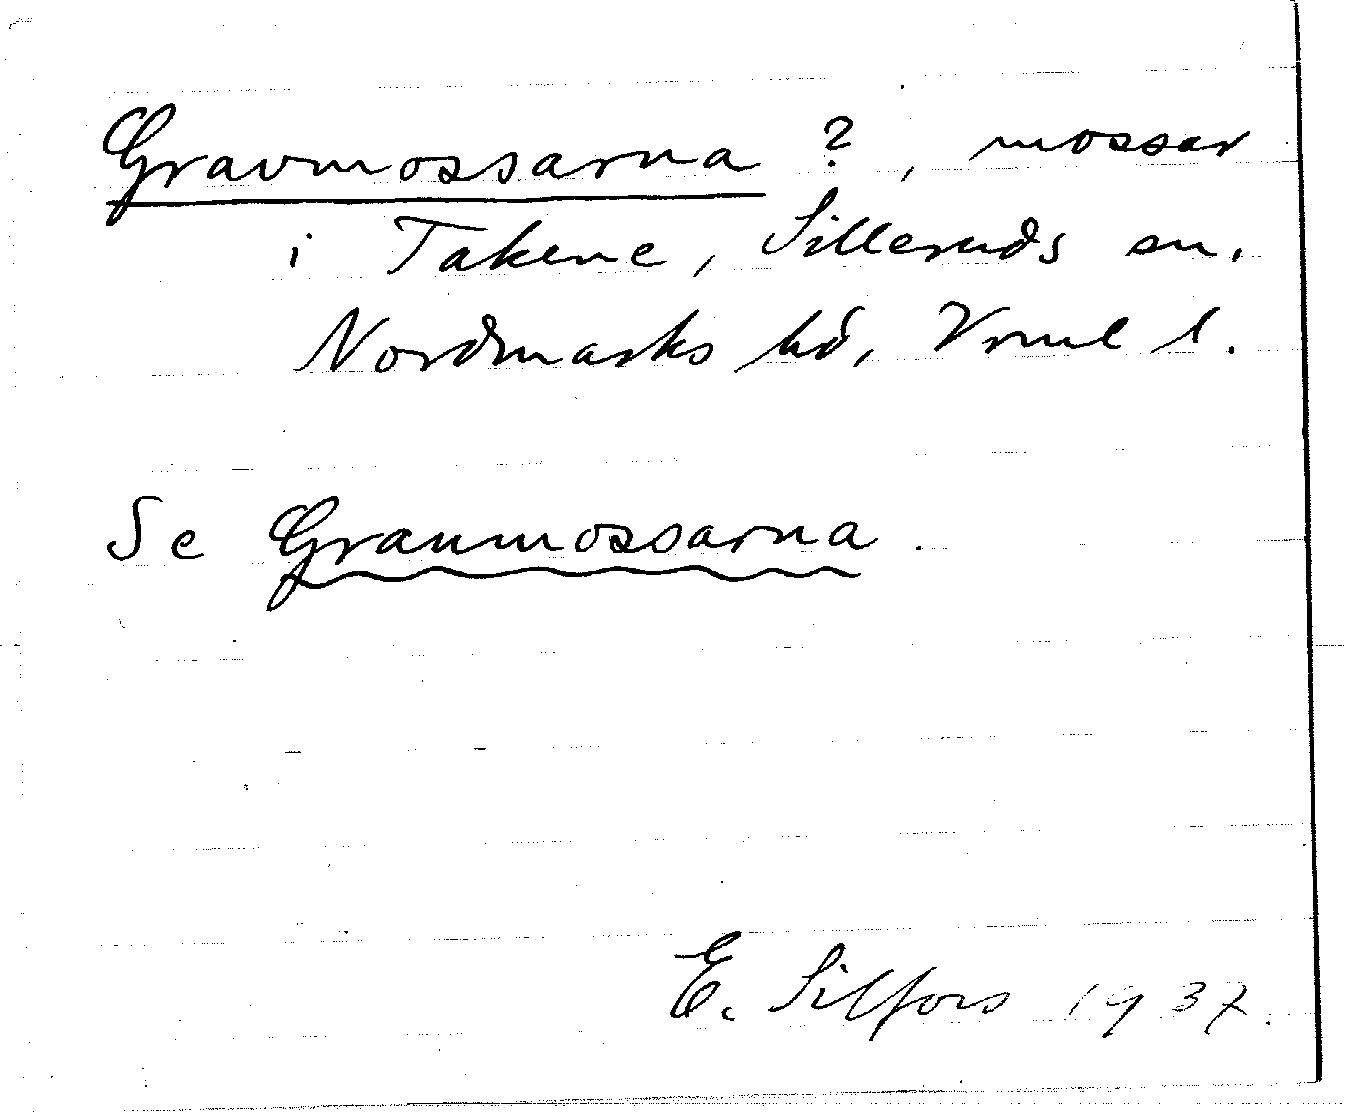 Gravmossarna ?, mossar
i Takene, Silleruds sn.
Nordmarks hd, Vrml l.
Se Granmossarna.
E. Silfors 1937.